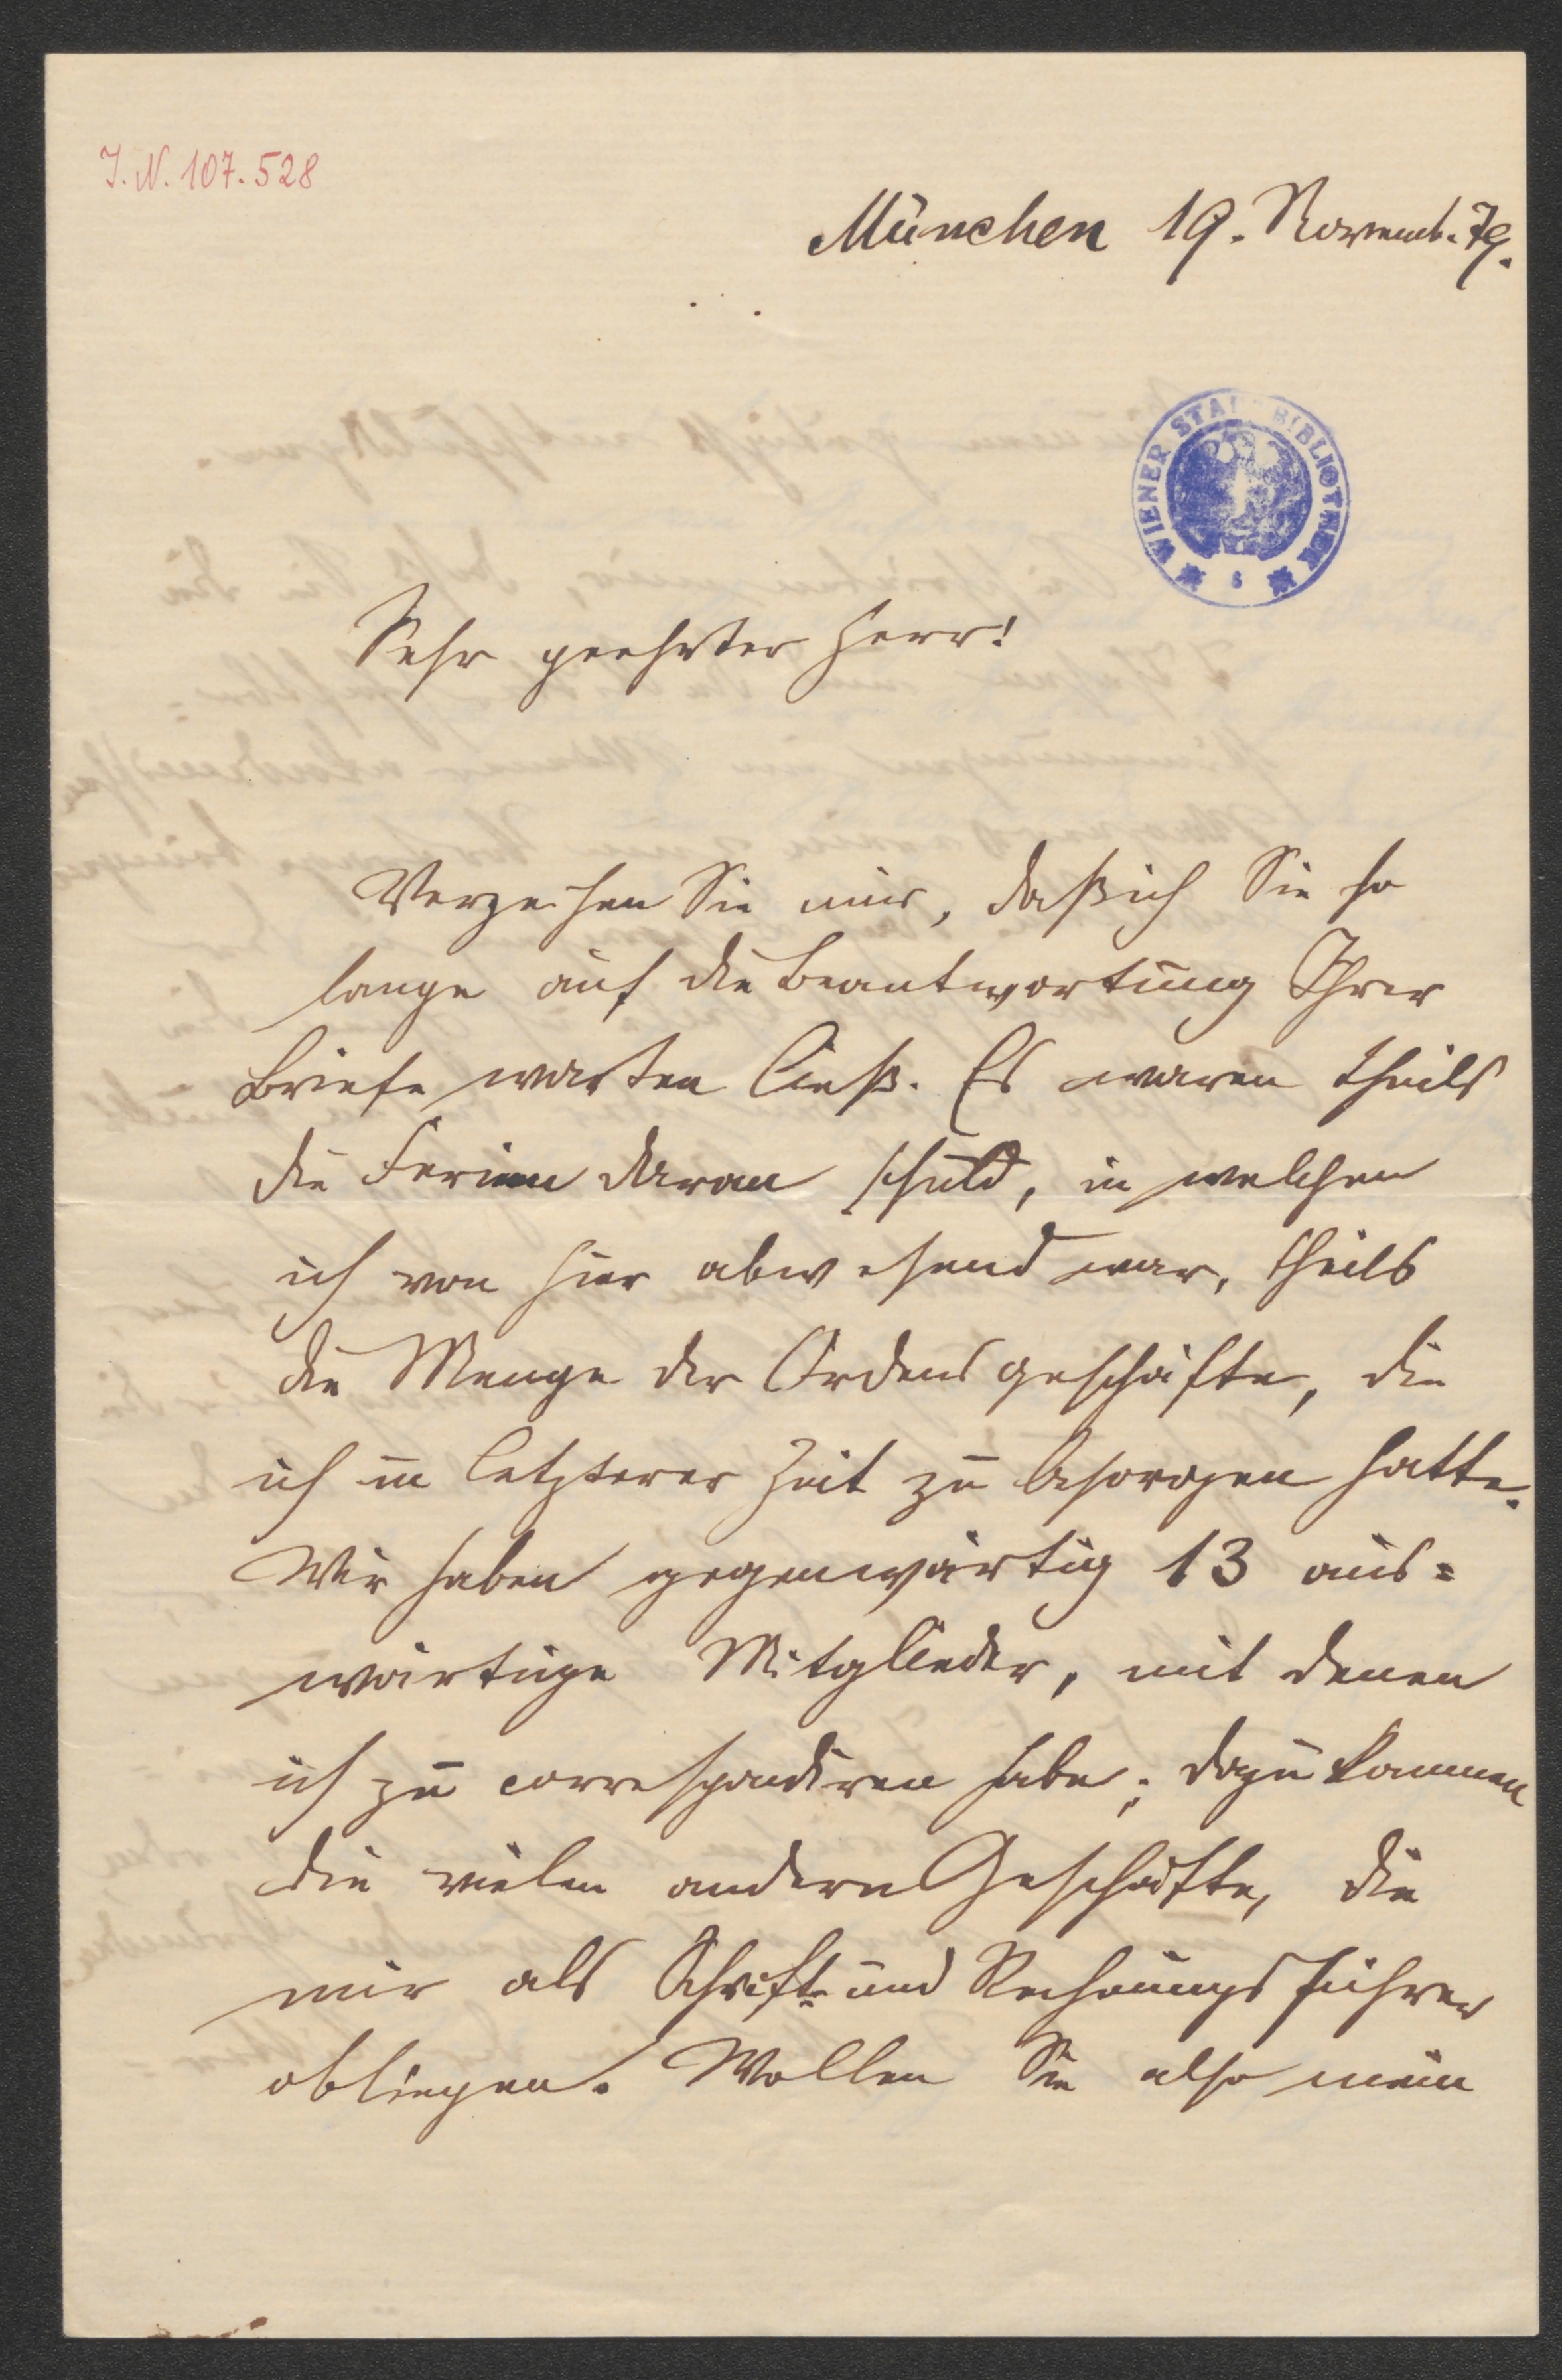 J. N. 107.528
München 19. Novemb. 79.
WIENER STADTBIBLIOTHEK
Sehr geehrter Herr!
Verzeihen Sie mir, daß ich Sie so
lange auf die Beantwortung Ihrer
Briefe warten ließ. Es waren theils
die Ferien daran schuld, in welchen
ich von hier abwesend war, theils
die Menge der Ordensgeschäfte, die
ich in letzterer Zeit zu besorgen hatte.
Wir haben gegenwärtig 13 aus=
wärtige Mitglieder, mit denen
ich zu correspondiren habe; dazu kommen
die vielen andern Geschäfte, die
mir als Schrift- und Rechnungsführer
obliegen. Wollen Sie also mein